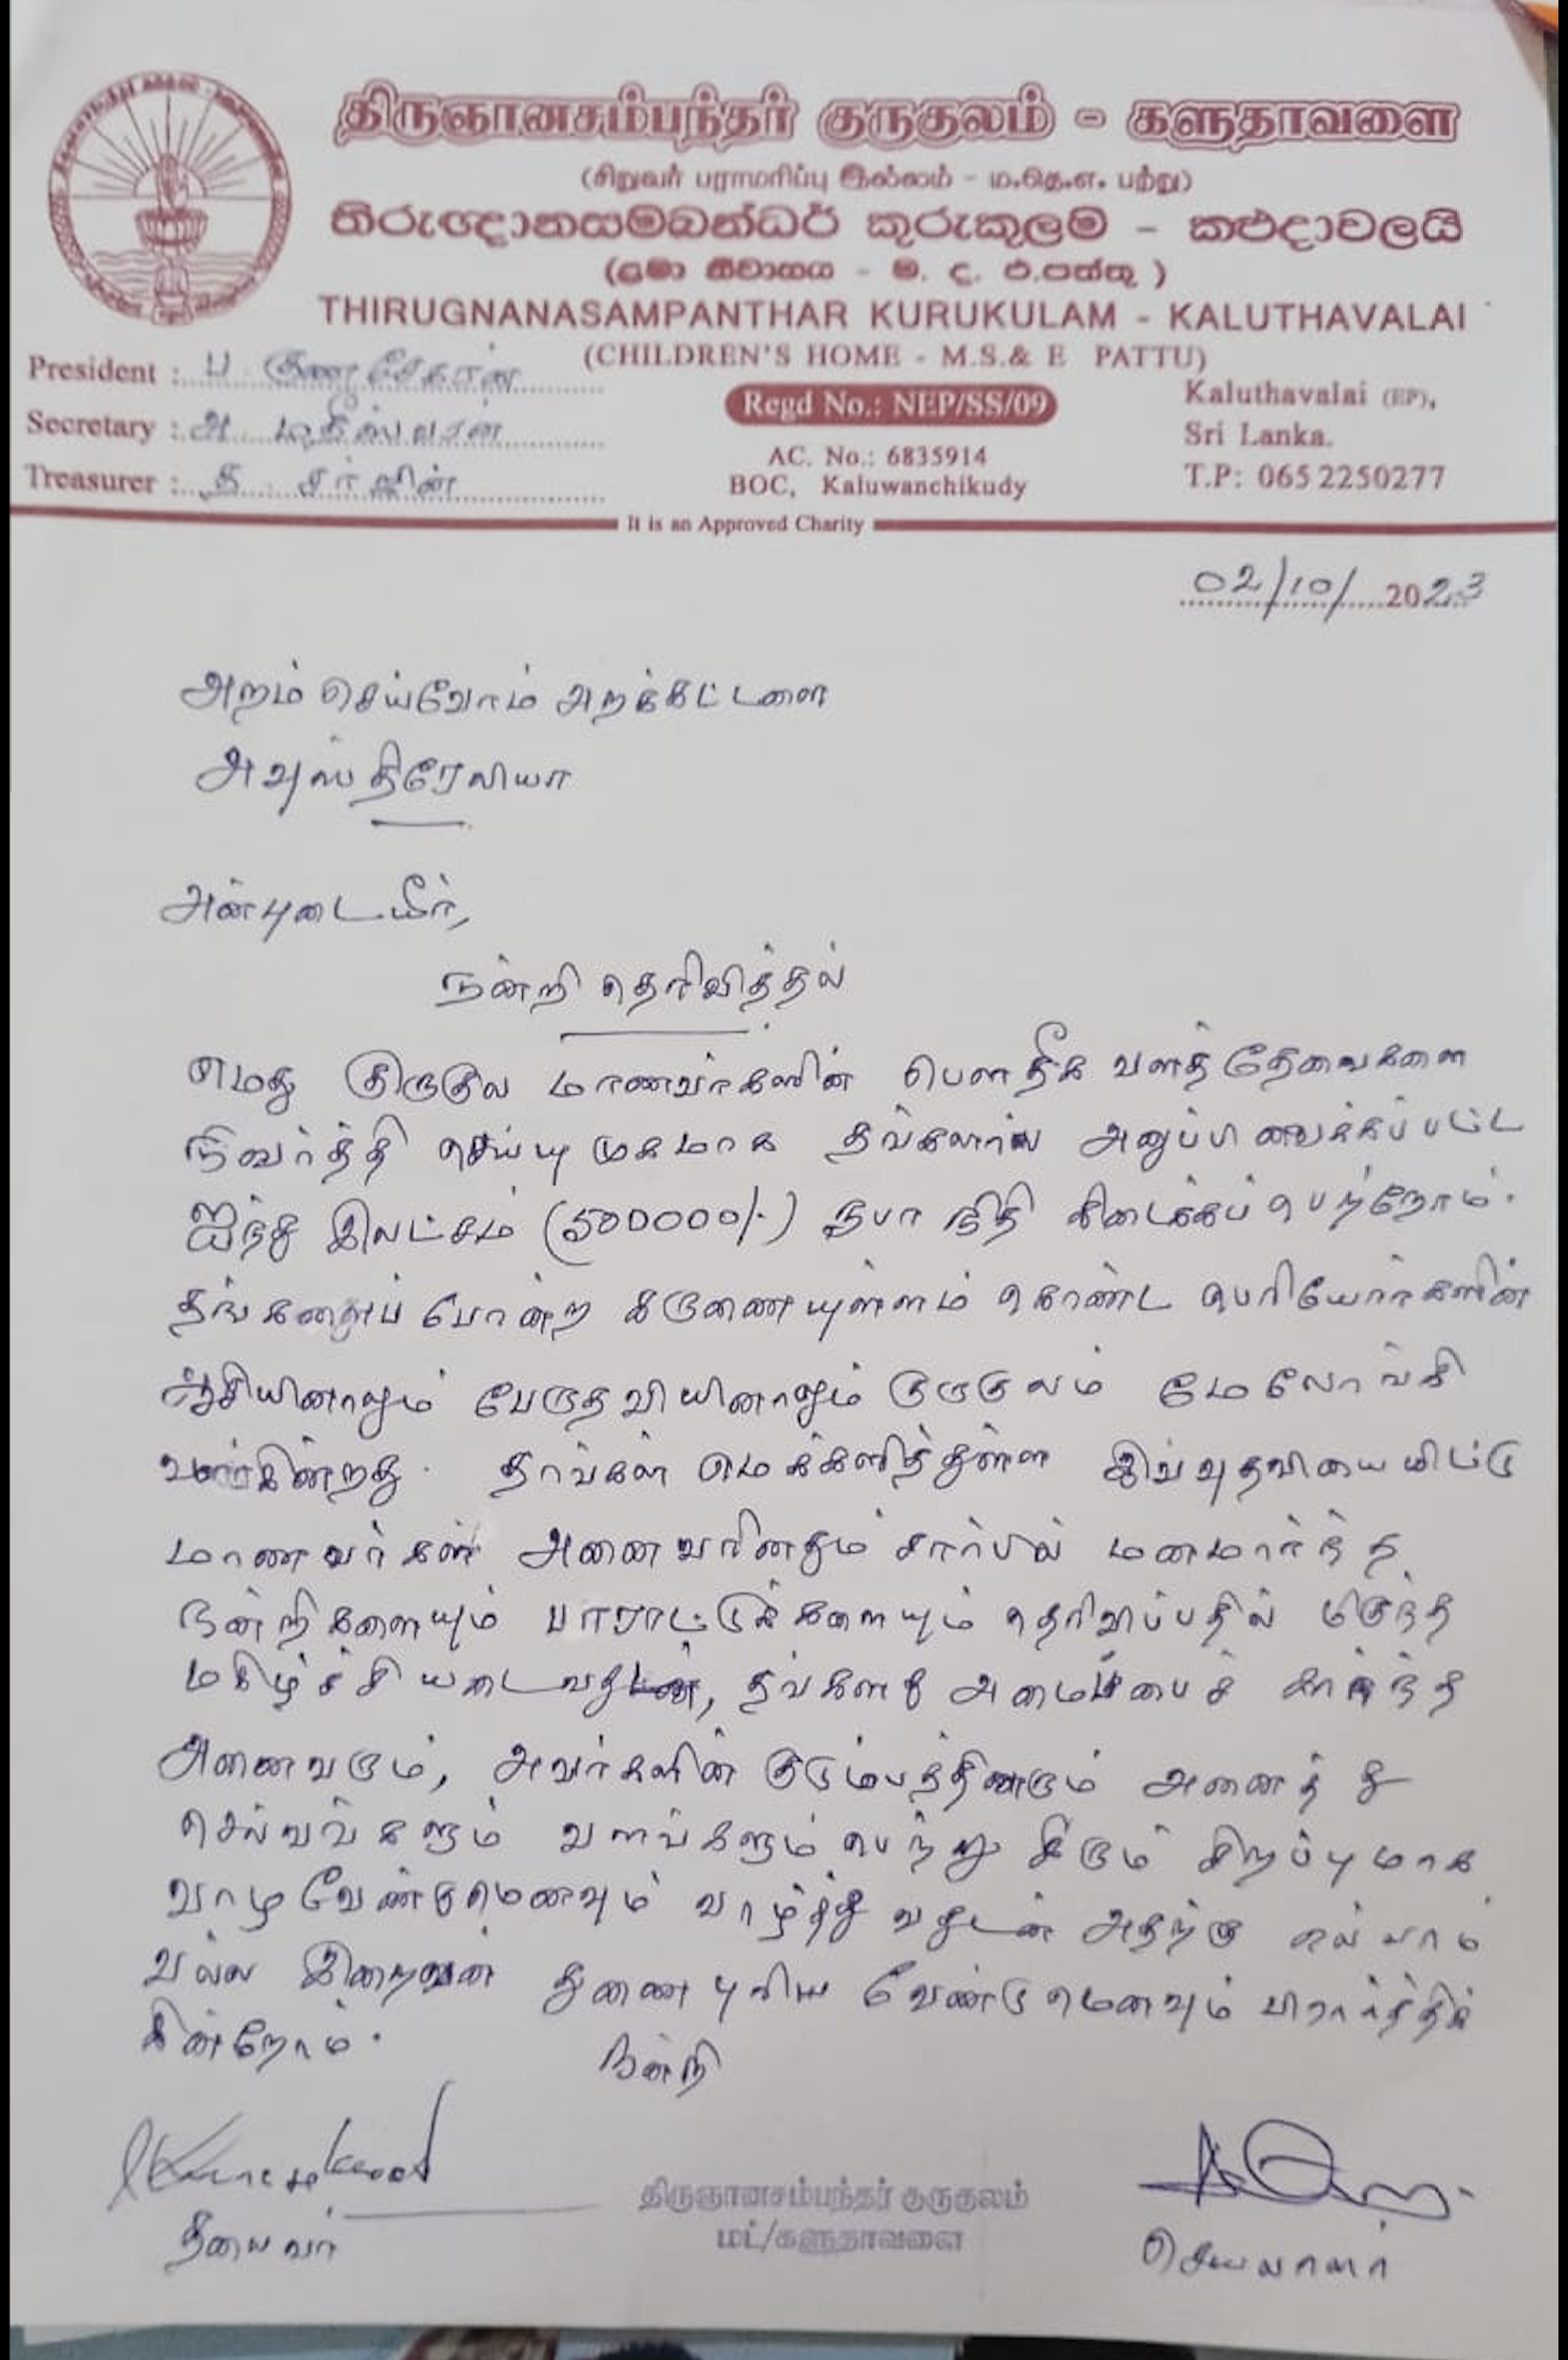 திருஞானசம்பந்தர் குருகுலம் - களுதாவளை
(சிறுவர் பராமரிப்பு இல்லம் - ம.தெ.எ. பற்று)
තිරුඥානසම්බන්ධර් කුරුකුලම් - කළුදාවලයි
(ළමා නිවාසය - ම. ද. එ.පත්තු )
THIRUGNANASAMPANTHAR KURUKULAM - KALUTHAVALAI
(CHILDREN'S HOME - M.S.& E PATTU)
President : ப. குணசேகரன்
Secretary : அ
Treasurer : த.
Regd No.: NEP/SS/09
AC. No.: 6835914
BOC, Kaluwanchikudy
Kaluthavalai (EP),
Sri Lanka.
T.P: 065 2250277
It is an Approved Charity
02/10/2023
அறம் செய்வோம் அறக்கட்டளை
அவுஸ்திரேலியா
அன்புடையீர்,
நன்றி தெரிவித்தல்
எமது குருகுல மாணவர்களின் பௌதீக வளத்தேவைகளை
நிவர்த்தி செய்யுமுகமாக தங்களால் அனுப்பிவைக்கப்பட்ட
ஐந்து இலட்சம் (500000/-) ரூபா நிதி கிடைக்கப்பெற்றோம்.
தங்களைப் போன்ற கருணையுள்ளம் கொண்ட பெரியோர்களின்
ஆசியினாலும் பேருதவியினாலும் குருகுலம் மேலோங்கி
வளர்கின்றது. தாங்கள் எமக்களித்துள்ள இவ்வுதவியையிட்டு
மாணவர்கள் அனைவரினதும் சார்பில் மனமார்ந்த
நன்றிகளையும் பாராட்டுக்களையும் தெரிவிப்பதில் மிகுந்த
மகிழ்ச்சியடைவதுடன், தங்களது அமைப்பைச் சார்ந்த
அனைவரும், அவர்களின் குடும்பத்தினரும் அனைத்து
செல்வங்களும் வளங்களும் பெற்று சீரும் சிறப்புமாக
வாழவேண்டுமெனவும் வாழ்த்துவதுடன் அதற்கு எல்லாம்
வல்ல இறைவன் துணை புரிய வேண்டுமெனவும் பிரார்த்திக்
கின்றோம்.
நன்றி
தலைவர்
திருஞானசம்பந்தர் குருகுலம்
மட்/களுதாவளை
செயலாளர்